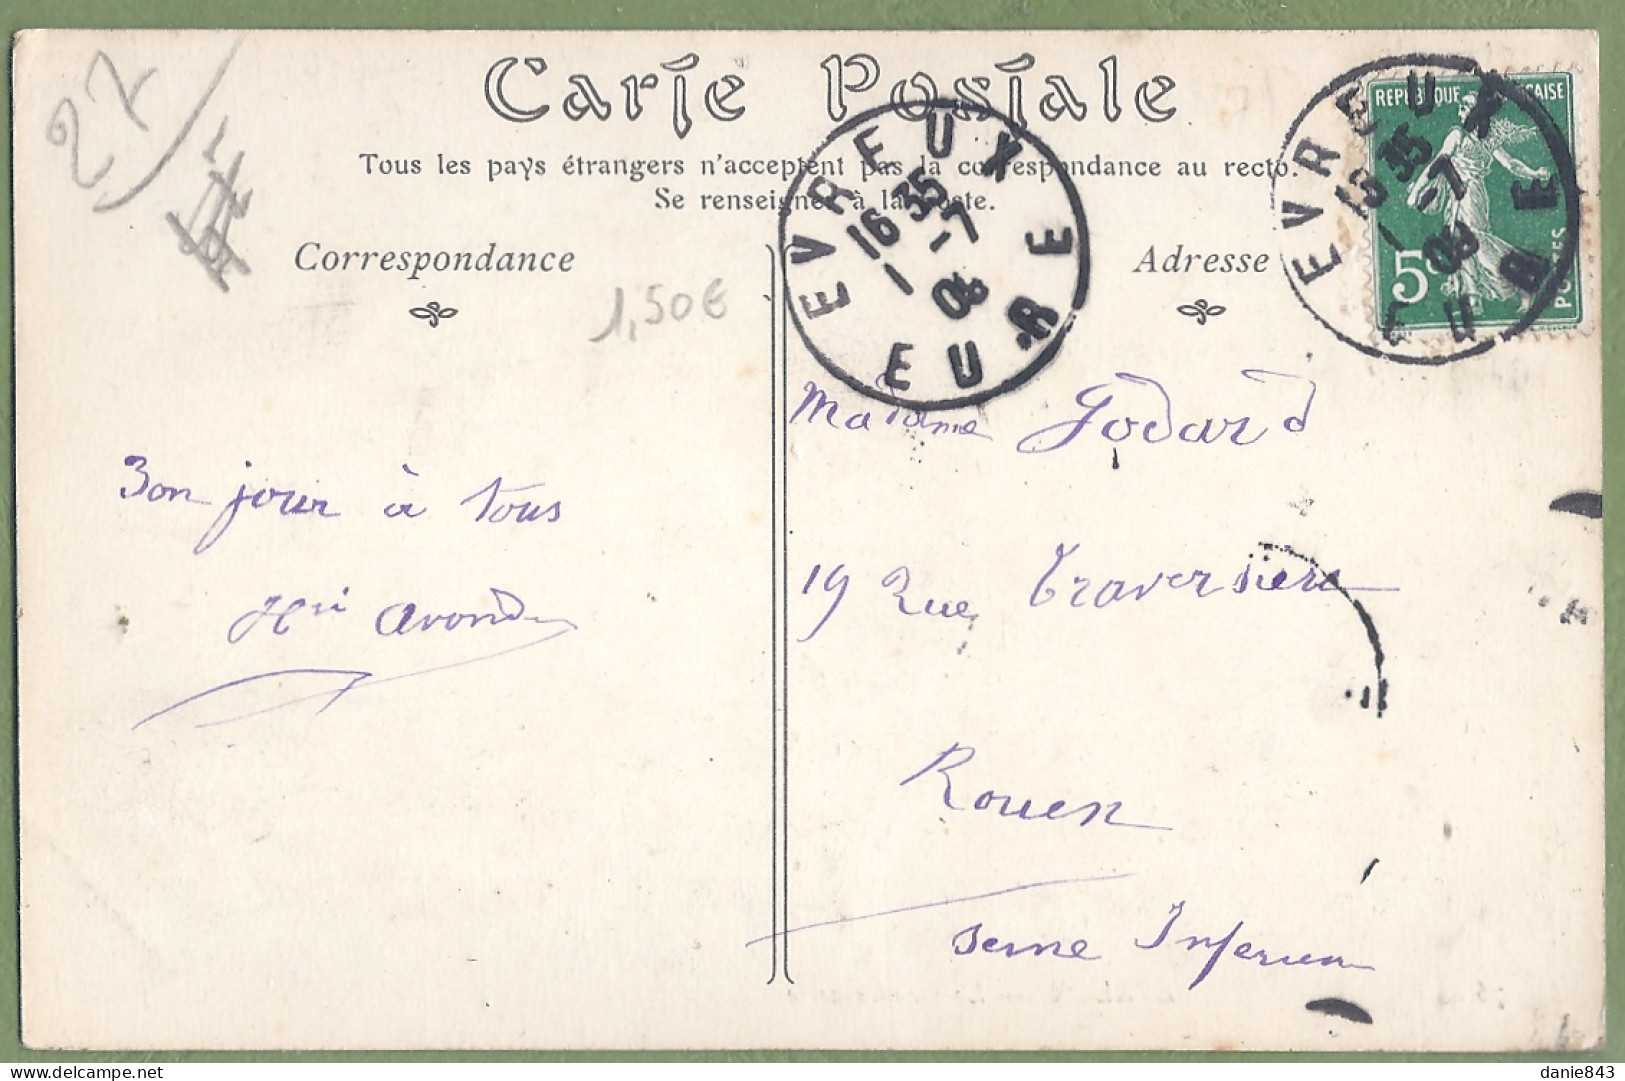 27
Carte Postale
Tous les pays étrangers n'acceptent pas la correspondance au recto.
Se renseigner à la Poste.
Correspondance
Adresse
1,50€
EVREUX
16 35
1 -7
08
EURE
EVREUX
16 35
1 -7
08
EURE
REPUBLIQUE FRANÇAISE
5c
POSTES
Bonjour à tous
Madame Godard
19 Rue Traversière
Rouen
Seine Inférieure
delcampe.net
danie843